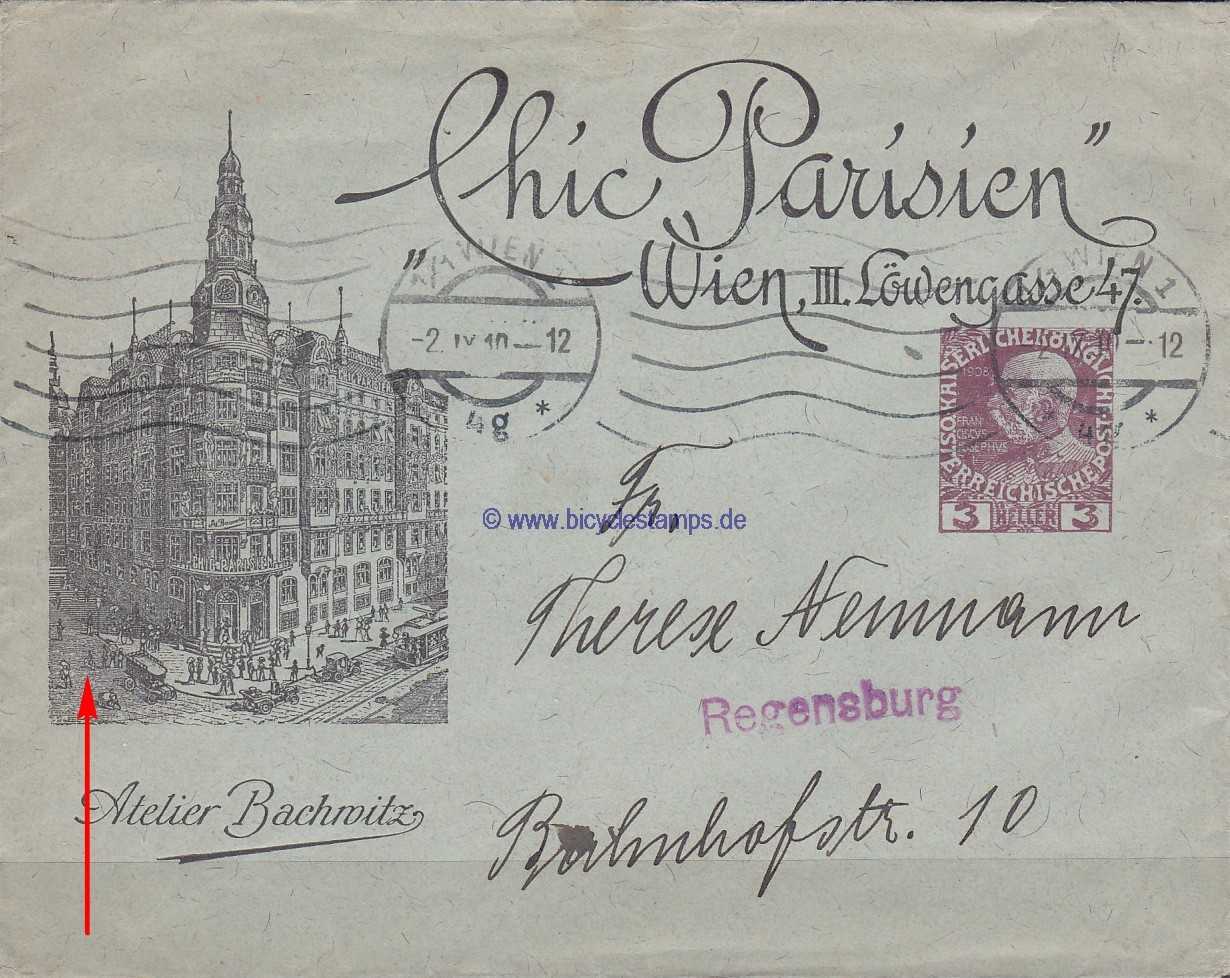 „Chic Parisien"
Wien, III. Löwengasse 47.
WIEN 1
-2. IV 10 — 12
4g *
WIEN 1
10 — 12
*
KAISERLICHE KÖNIGLICHE ÖSTERREICHISCHE POST
1908
FRAN
CISCVS
IOSEPHVS
3 HELLER 3
CHIC PARISIEN
© www.bicyclestamps.de
Fr.
Therese Neumann
Regensburg
Bahnhofstr. 10
Atelier Bachwitz